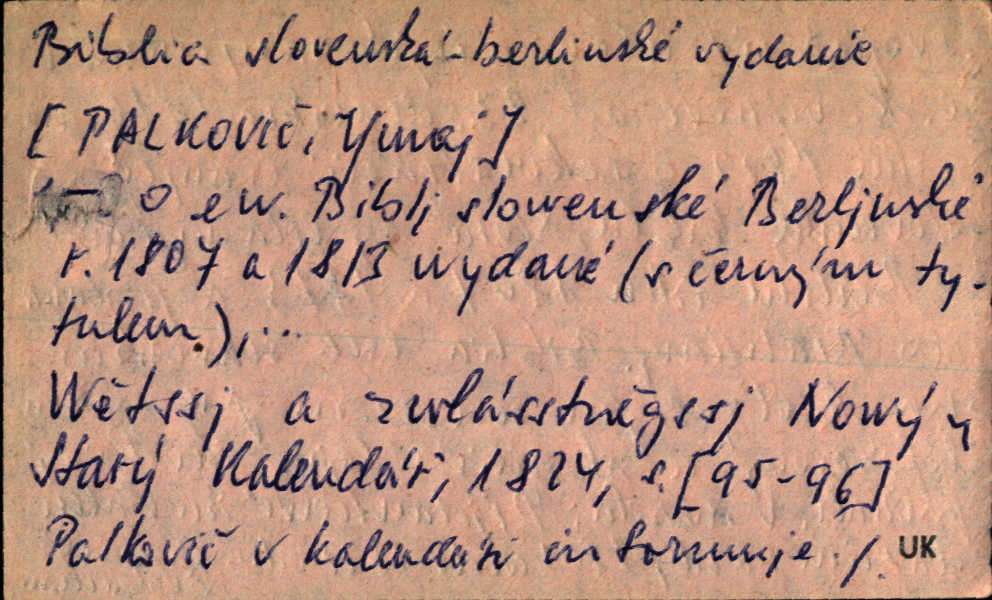 Biblia slovenská - berlinské vydanie
[PALKOVIČ, Juraj]
O ew. Biblj slowenské Berljnské
r. 1807 a 1813 wydané (s černým ty-
tulem), ...
Wětssj a zwlásstněgssj Nowý y
Starý Kalendář, 1824, s. [95-96]
Palkovič v kalendáři informuje ./. UK